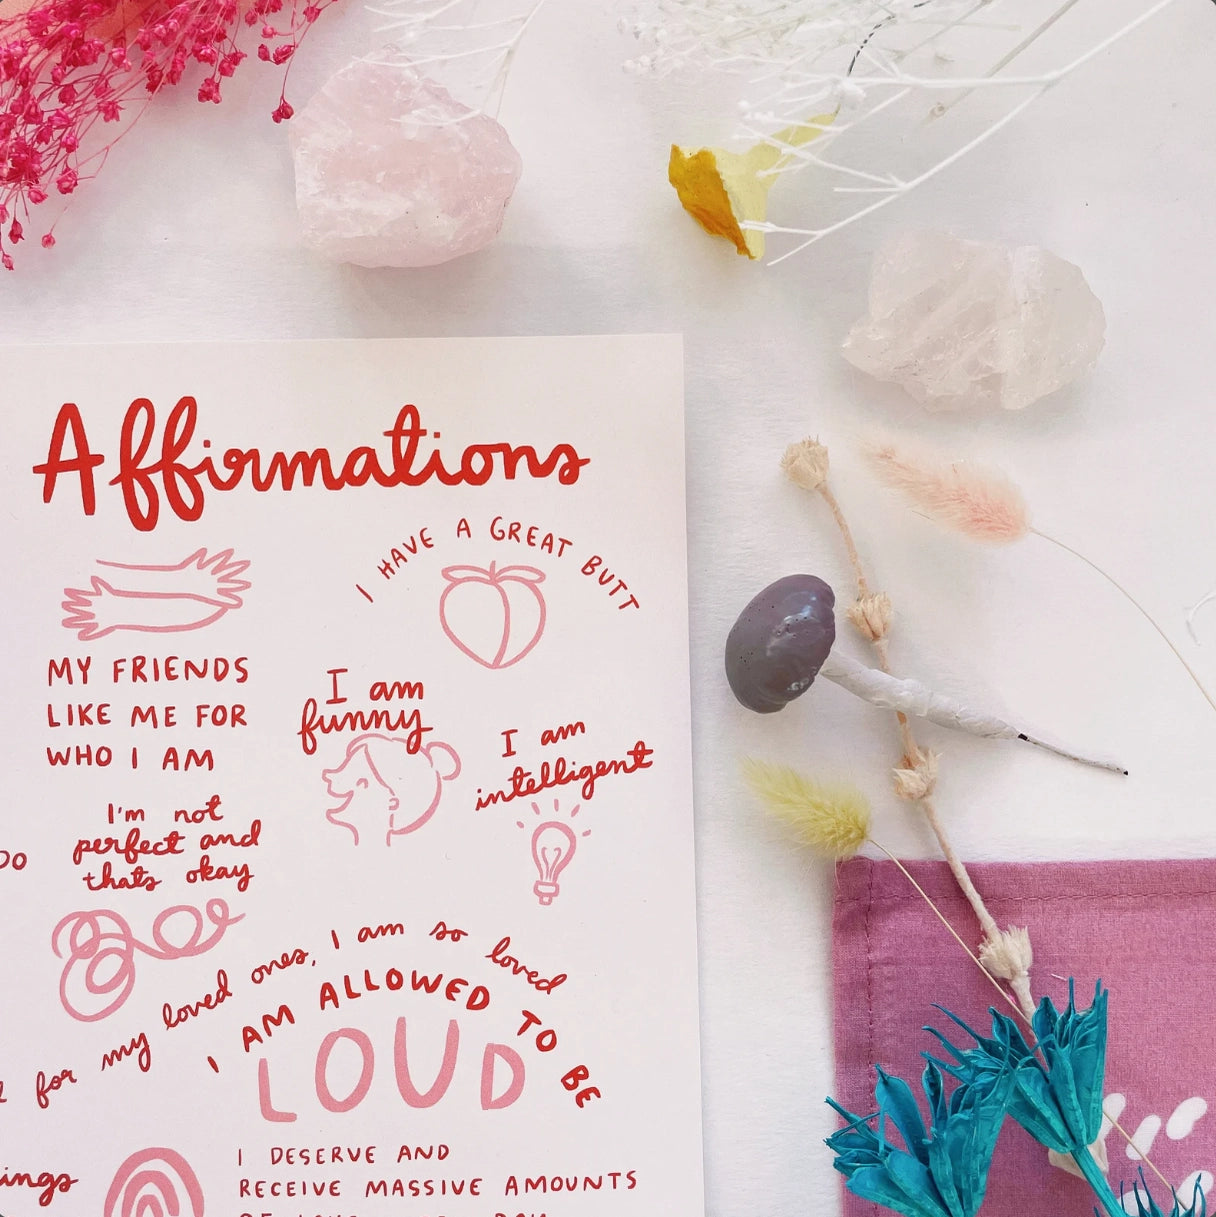 Affirmations
I HAVE A GREAT BUTT
MY FRIENDS
LIKE ME FOR
WHO I AM
I am
funny
I am
intelligent
I'm not
perfect and
thats okay
for my loved ones, I am so loved
I AM ALLOWED TO BE
LOUD
I DESERVE AND
RECEIVE MASSIVE AMOUNTS